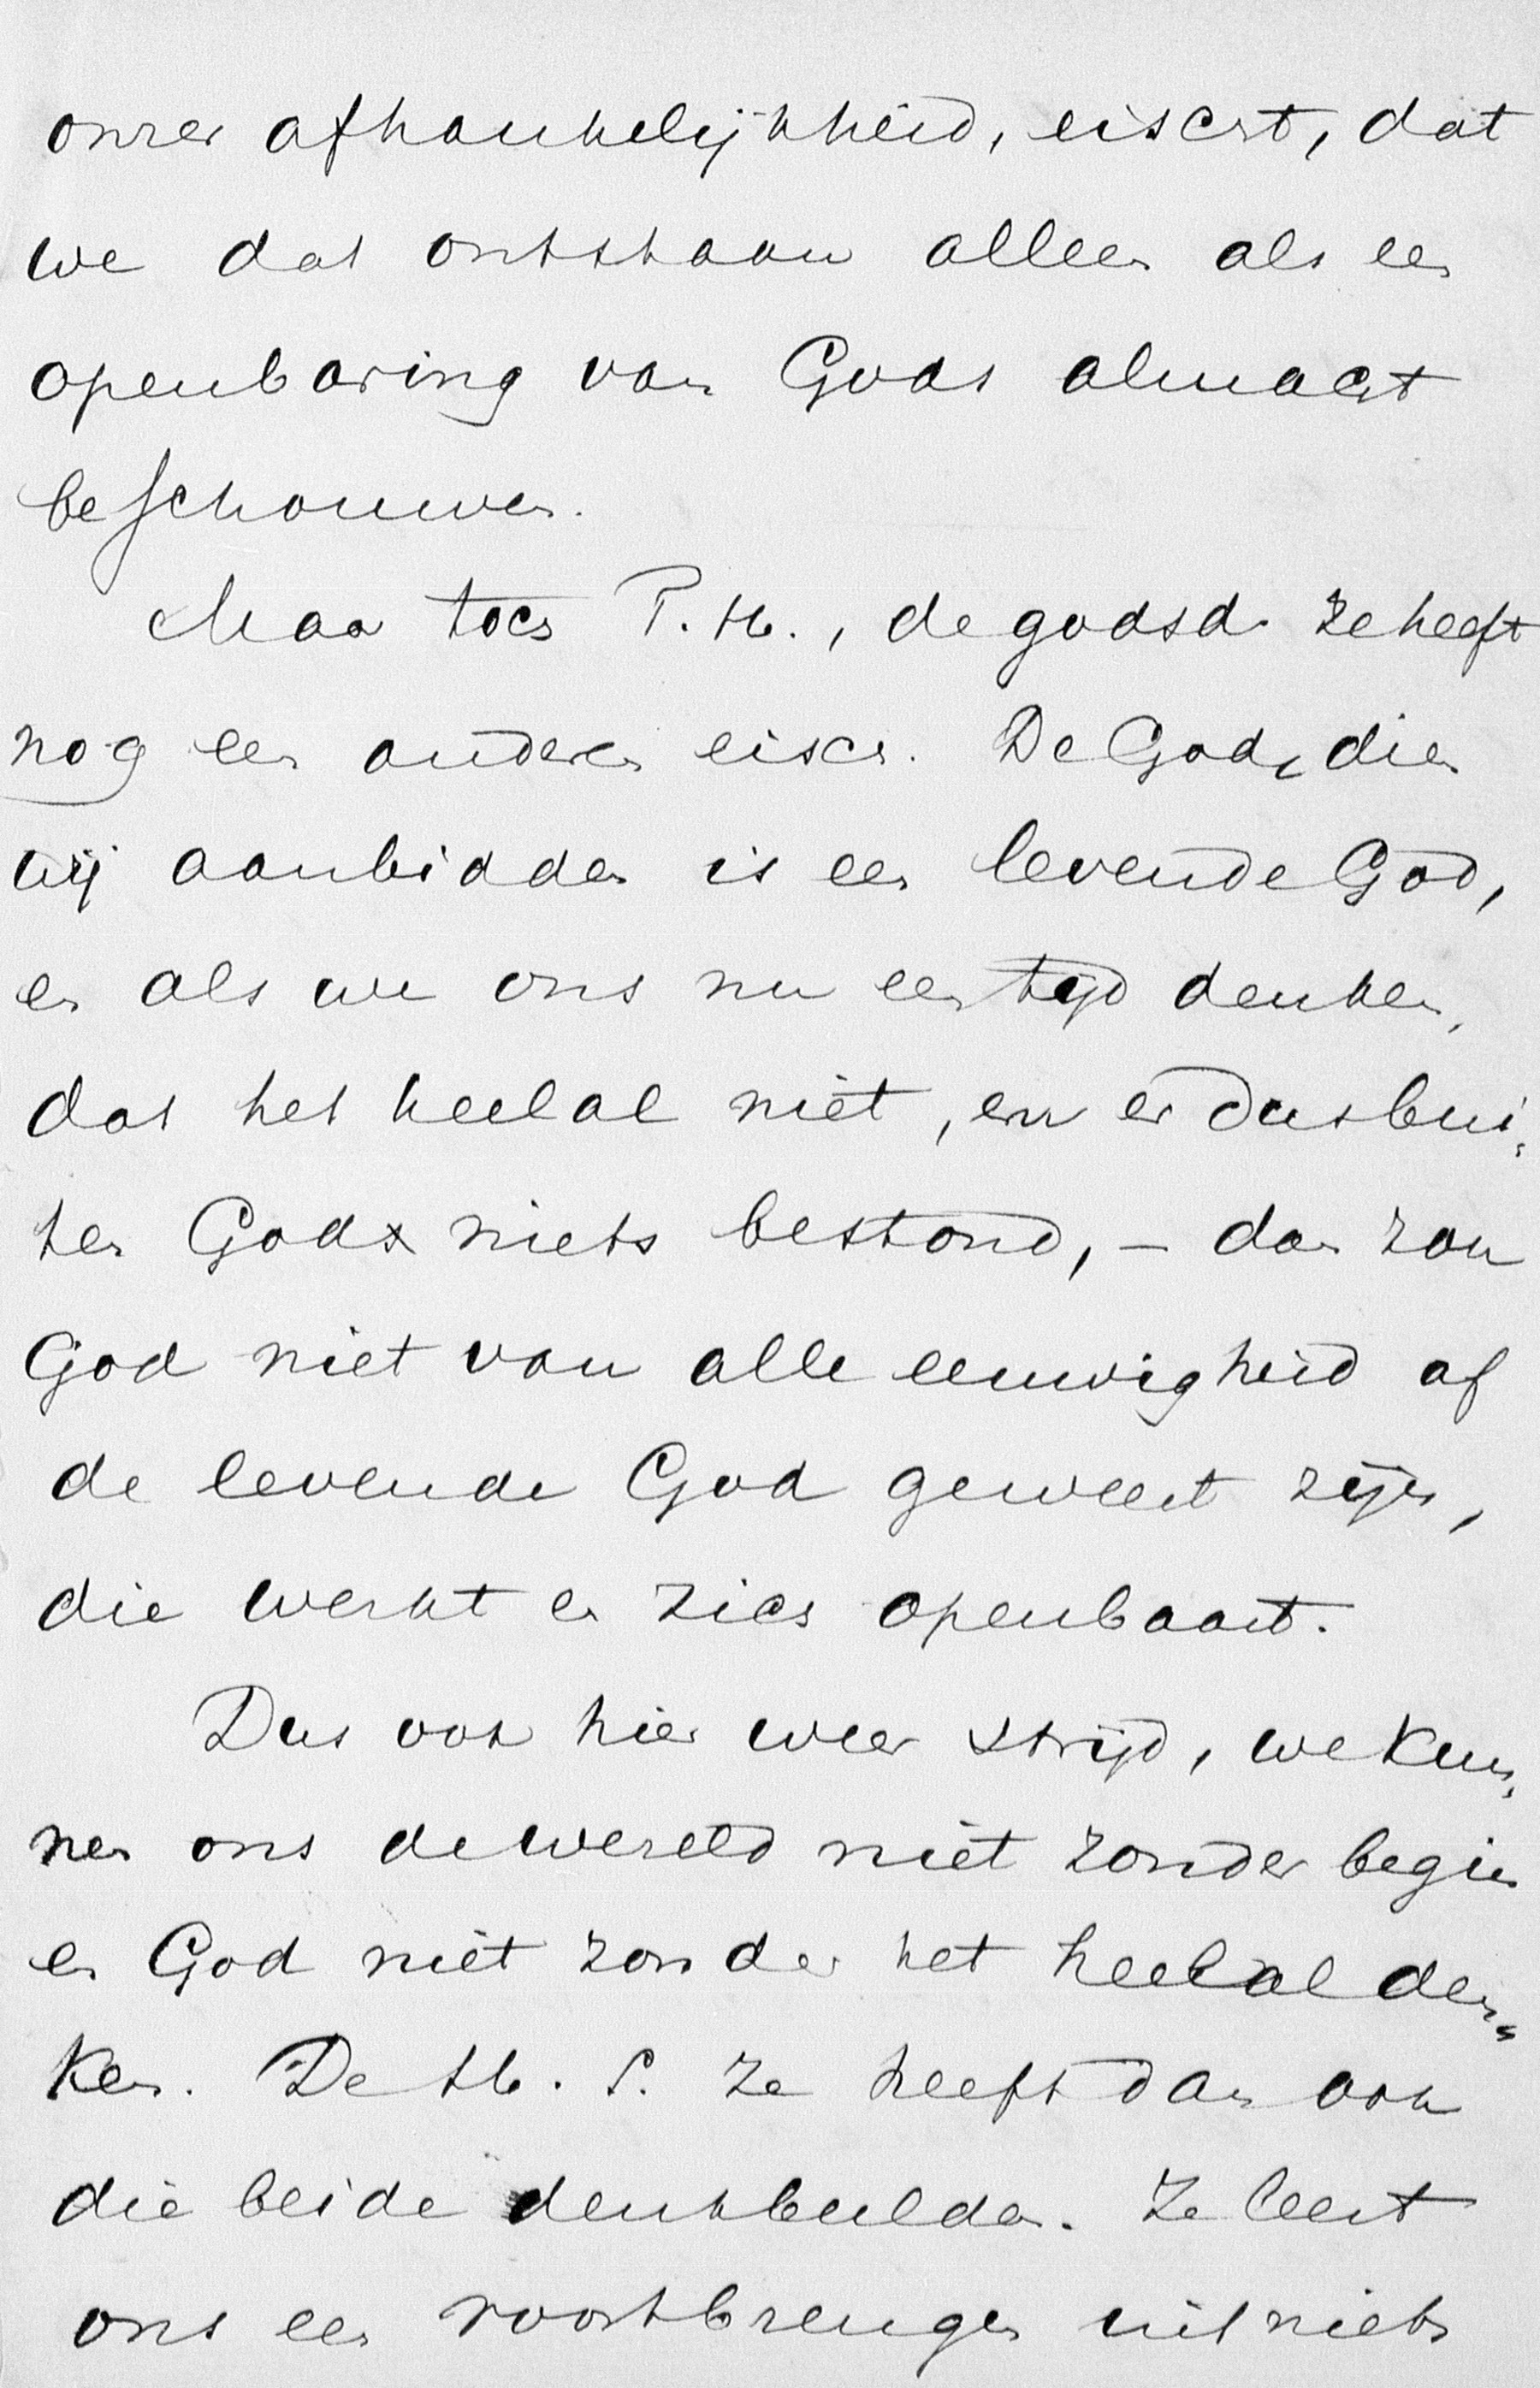 onzer afhankelijkheid, eischt, dat
we dat ontstaan alleen als een
openbaring van Gods almacht
beschouwen.
Maar toch T. H., de godsd. ze heeft
nog een anderen eisch. De God, dien
wij aanbidden is een levende God,
en als we ons nu een tijd denken,
dat het heelal niet, en er dus bui-
ten God niets bestond, – dan zou
God niet van alle eeuwigheid af
de levende God geweest zijn,
die werkt en zich openbaart.
Dus ook hier weer strijd, we kun-
nen ons de wereld niet zonder begin
en God niet zonder het heelal den-
ken. De H. S. ze heeft dan ook
die beide denkbeelden. Ze leert
ons een voortbrengen uit niets